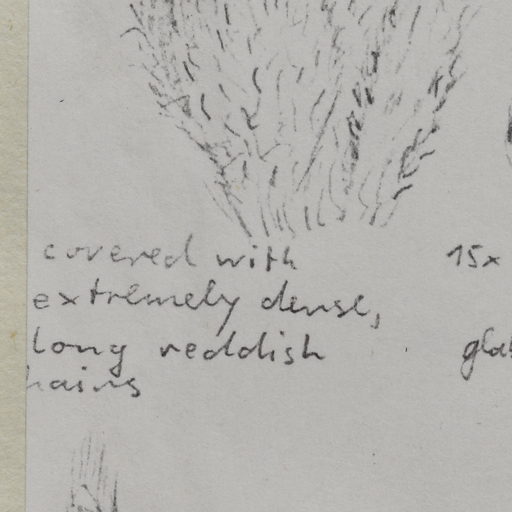 covered with
extremely dense,
long reddish
hairs
15x